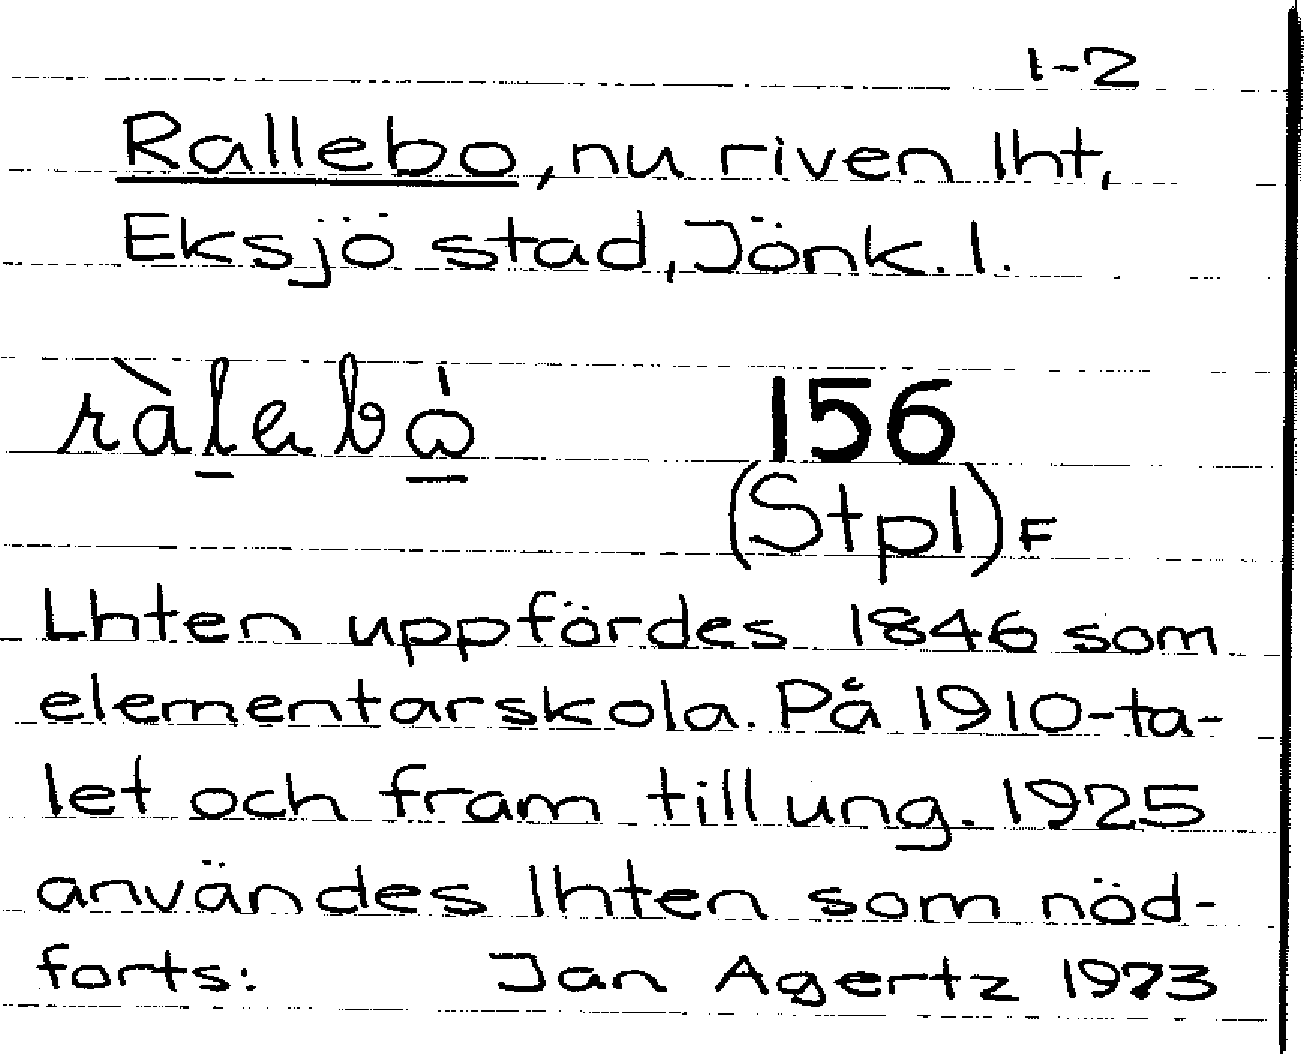 1-2
Rallebo, nu riven lht,
Eksjö stad, Jönk. l.
ràlebó 156
(Stpl) F
Lhten uppfördes 1846 som
elementarskola. På 1910-ta-
let och fram till ung. 1925
användes lhten som nöd-
forts: Jan Agertz 1973